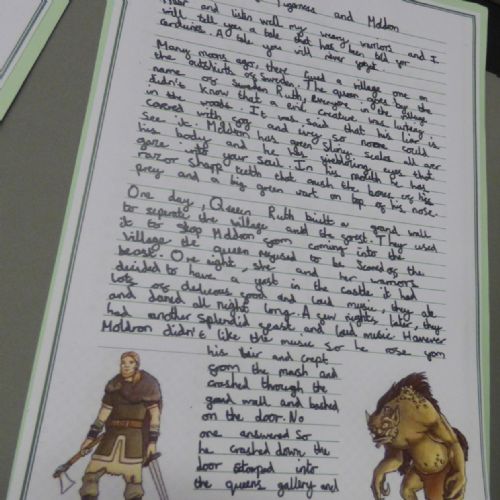 and Moldron
Hear and listen well my weary warriors and I
will tell you a tale that has been told for
centuries. A tale you will never forget.
Many moons ago, there lived a village one on
the outskirts of Sweden. The queen goes by the
name of Sweden Ruth, everyone in the village
didn't know that a evil creature was lurking
in the woods. It was said that his liar is
covered with fog and ivry so noone could
see it. Moldron has green slimy scales all over
his body and he has piedding eyes that
gaze into your soul. In his mouth he has
razor sharp teeth that crush the bones of his
prey and a big green wart on top of his nose.
One day, Queen Ruth buildt a grand wall
to separate the village and the forest. They used
it to stop Moldron from coming into the
village the queen refused to be scared of the
beast. One night, she and her warriors
decided to have a feast in the castle it had
lots of delicious food and loud music, they ate
and danced all night long. A few nights later, they
had another splendid feast and loud music. However
Moldron didn't like the music so he rose from
his liar and crept
from the marsh and
crashed through the
grand wall and bashed
on the door. No
one answered so
he crashed down the
door stomped into
the queens gallery and